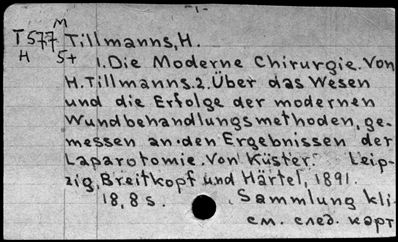 -1-
M
T577 Tillmanns, H.
H 5+
1. Die Moderne Chirurgie. Von
H. Tillmanns. 2. Über das Wesen
und die Erfolge der modernen
Wundbehandlungsmethoden, ge-
messen an den Ergebnissen der
Laparotomie. Von Küster. Leip-
zig, Breitkopf und Härtel, 1891.
18, 8 s. . Sammlung kli-
см. след. карт